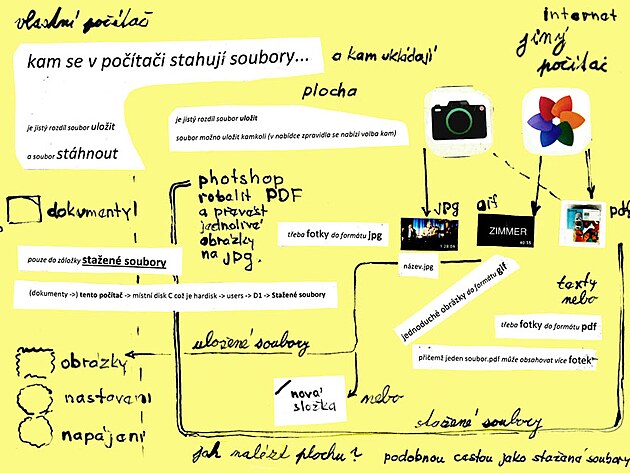 vlastní počítač
internet
jiný
počítač
kam se v počítači stahují soubory...
a kam ukládají
plocha
je jistý rozdíl soubor uložit
a soubor stáhnout
je jistý rozdíl soubor uložit
soubor možno uložit kamkoli (v nabídce zpravidla se nabízí volba kam)
photshop
robalit PDF
a převést
jednolivé
obrázky
na jpg.
dokumenty
jpg
gif
pdf
třeba fotky do formátu jpg
1:28:09
ZIMMER
název.jpg
pouze do záložky stažené soubory
jednoduché obrázky do formátu gif
texty
nebo
(dokumenty ->) tento počítač -> místní disk C což je hardisk -> users -> D1 -> Stažené soubory
třeba fotky do formátu pdf
uložené soubory
přičemž jeden soubor.pdf může obsahovat více fotek
obrázky
nastavaní
napájaní
nová
složka
nebo
stažené soubory
jak nalézt plochu?
podobnou cestou jako stažená soubory